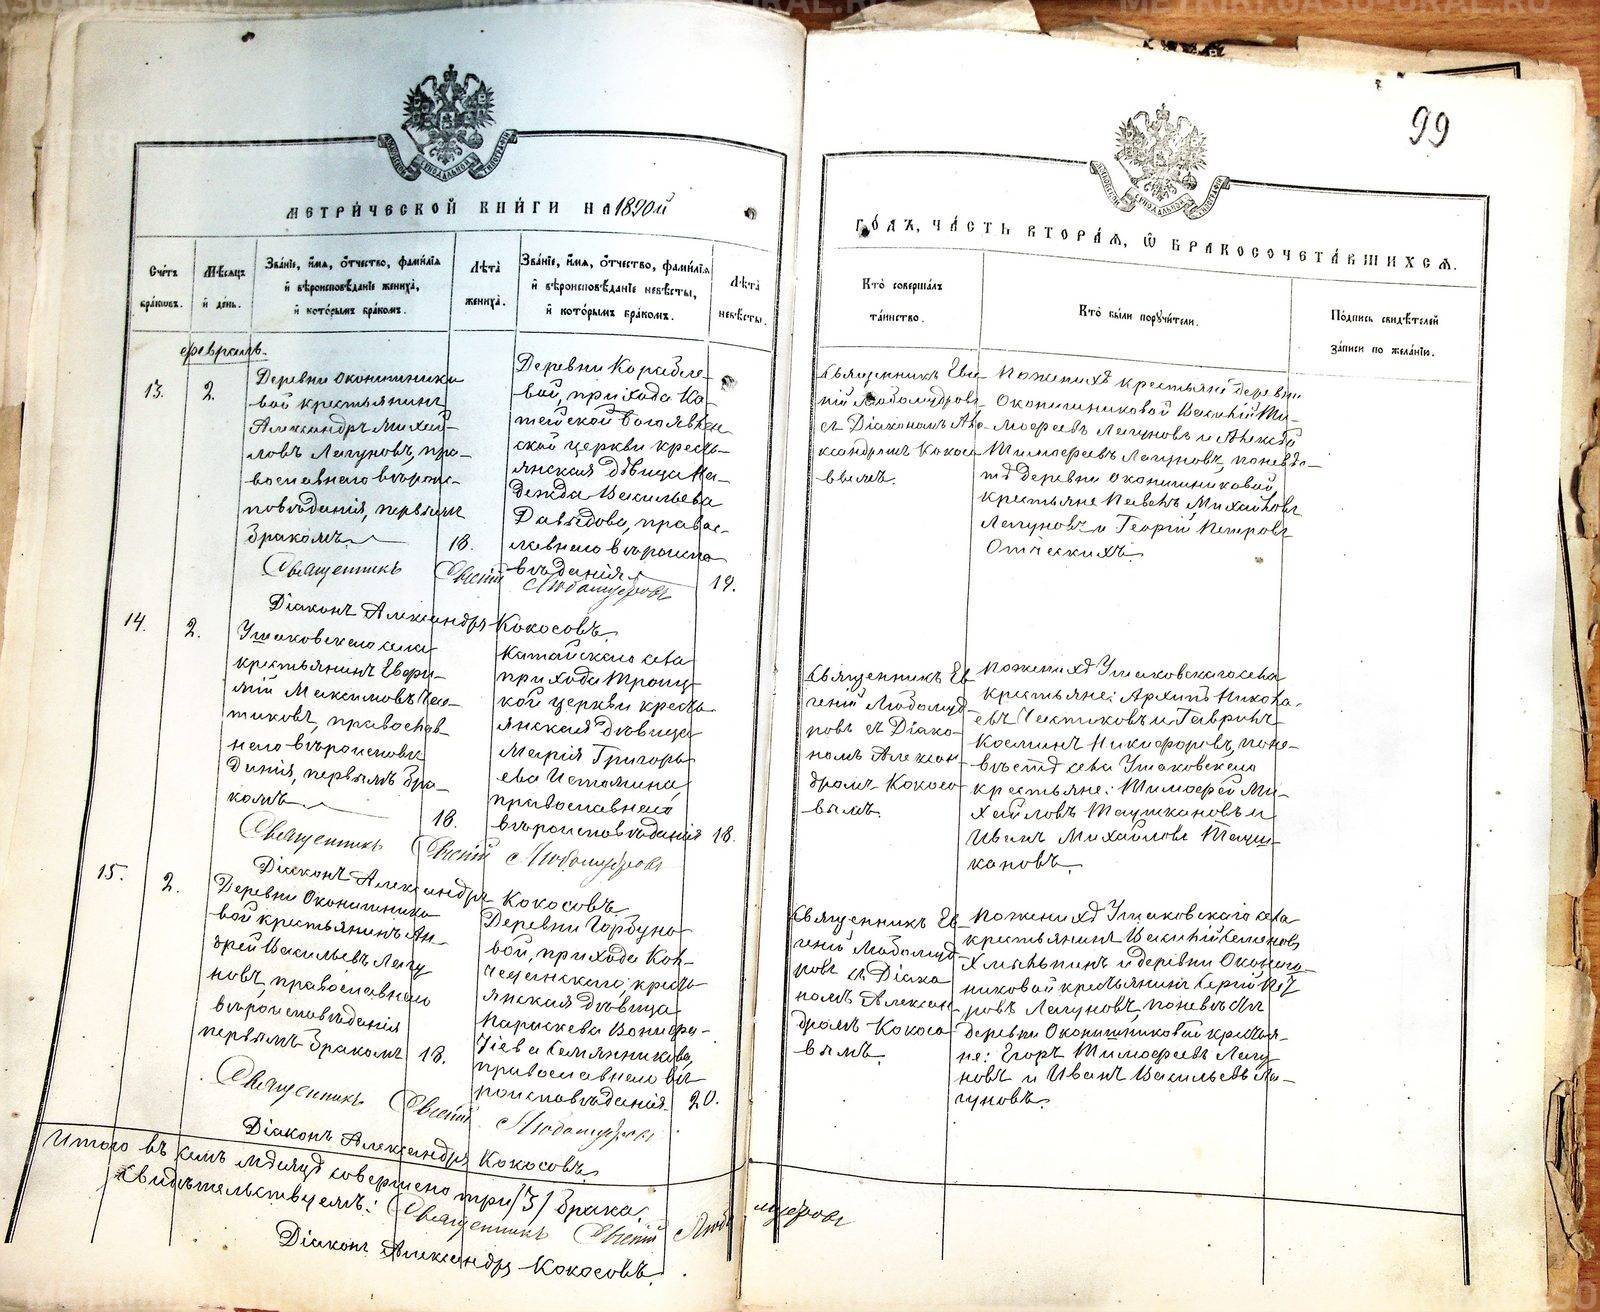 METRIKI.GASO-URAL.RU
99
МЕТРИЧЕСКОЙ КНИГИ НА 1890й
ГОДЪ, ЧАСТЬ ВТОРАЯ, Ѡ БРАКОСОЧЕТАВШИХСЯ.
Счетъ браковъ.
Мѣсяцъ и день.
Званіе, имя, отчество, фамилія и вѣроисповѣданіе жениха, и которымъ бракомъ.
Лѣта жениха.
Званіе, имя, отчество, фамилія и вѣроисповѣданіе невѣсты, и которымъ бракомъ.
Лѣта невѣсты.
Кто совершалъ таинство.
Кто были поручители.
Подпись свидѣтелей записи по желанію.
февраль.
13.
2.
Деревни Оконишнико
вой крестьянинъ
Александръ Михай-
ловъ Лагуновъ, пра-
вославнаго вѣроис-
повѣданія, первымъ
бракомъ.
18.
Деревни Корабле-
вой, прихода Ка-
тайской Богоявлен
ской церкви кресть-
янская дѣвица На-
дежда Васильева
Давыдова, правос-
лавнаго вѣроиспо
вѣданія
19.
Священникъ Евгеній Любомудровъ
Діаконъ Александръ Кокосовъ.
Священникъ Евге-
ній Любомудровъ
съ Діакономъ Але-
ксандромъ Кокосо
вымъ.
По женихѣ крестьяне деревни
Оконишниковой Василій Ти-
мофеевъ Лагуновъ и Алексѣй
Тимофеевъ Лагуновъ, по невѣс-
тѣ деревни Оконишниковой
крестьяне Павелъ Михайловъ
Лагуновъ и Георгій Петровъ
Отческихъ.
14.
2.
Ушаковскаго села
крестьянинъ Евфи-
мій Максимовъ Чис-
тиковъ, православ-
наго вѣроисповѣ
данія, первымъ бра-
комъ
18.
Катайскаго села
прихода Троиц-
кой церкви кресть
янская дѣвица
Марія Григорь
ева Истомина,
православнаго
вѣроисповѣданія
18.
Священникъ Евгеній Любомудровъ
Діаконъ Александръ Кокосовъ
Священникъ Ев
геній Любомуд-
ровъ съ Діако-
номъ Алексан
дромъ Кокосо
вымъ.
По женихѣ Ушаковскаго села
крестьяне: Архипъ Никола-
евъ Чистиковъ и Гавріилъ
Косминъ Никифоровъ, по не-
вѣстѣ села Ушаковскаго
крестьяне: Тимофей Ми-
хайловъ Таушкановъ и
Иванъ Михайловъ Тауш-
кановъ.
15.
2.
Деревни Оконишнико
вой крестьянинъ Ан-
дрей Васильевъ Лагу
новъ, православнаго
вѣроисповѣданія
первымъ бракомъ
18.
Деревни Горбуно
вой, прихода Кол-
чеданскаго, кресть
янская дѣвица
Параскева Вонифа-
тіева Семянникова,
православнаго вѣ
роисповѣданія.
20.
Священникъ Евгеній Любомудровъ
Діаконъ Александръ Кокосовъ.
Священникъ Ев-
геній Любомуд-
ровъ съ Діако
номъ Алексан
дромъ Кокосо
вымъ.
По женихѣ Ушаковскаго села
крестьянинъ Василій Семеновъ
Хмѣльнинъ и деревни Оконош-
никовой крестьянинъ Сергій Пет
ровъ Лагуновъ, по невѣстѣ
деревни Оконишниковой крестья-
не: Егоръ Тимофеевъ Лагу
новъ и Иванъ Васильевъ Ла-
гуновъ.
Итого въ семъ мѣсяцѣ совершено три /3/ брака.
Свидѣтельствуемъ: Священникъ Евгеній Любомудровъ
Діаконъ Александръ Кокосовъ.